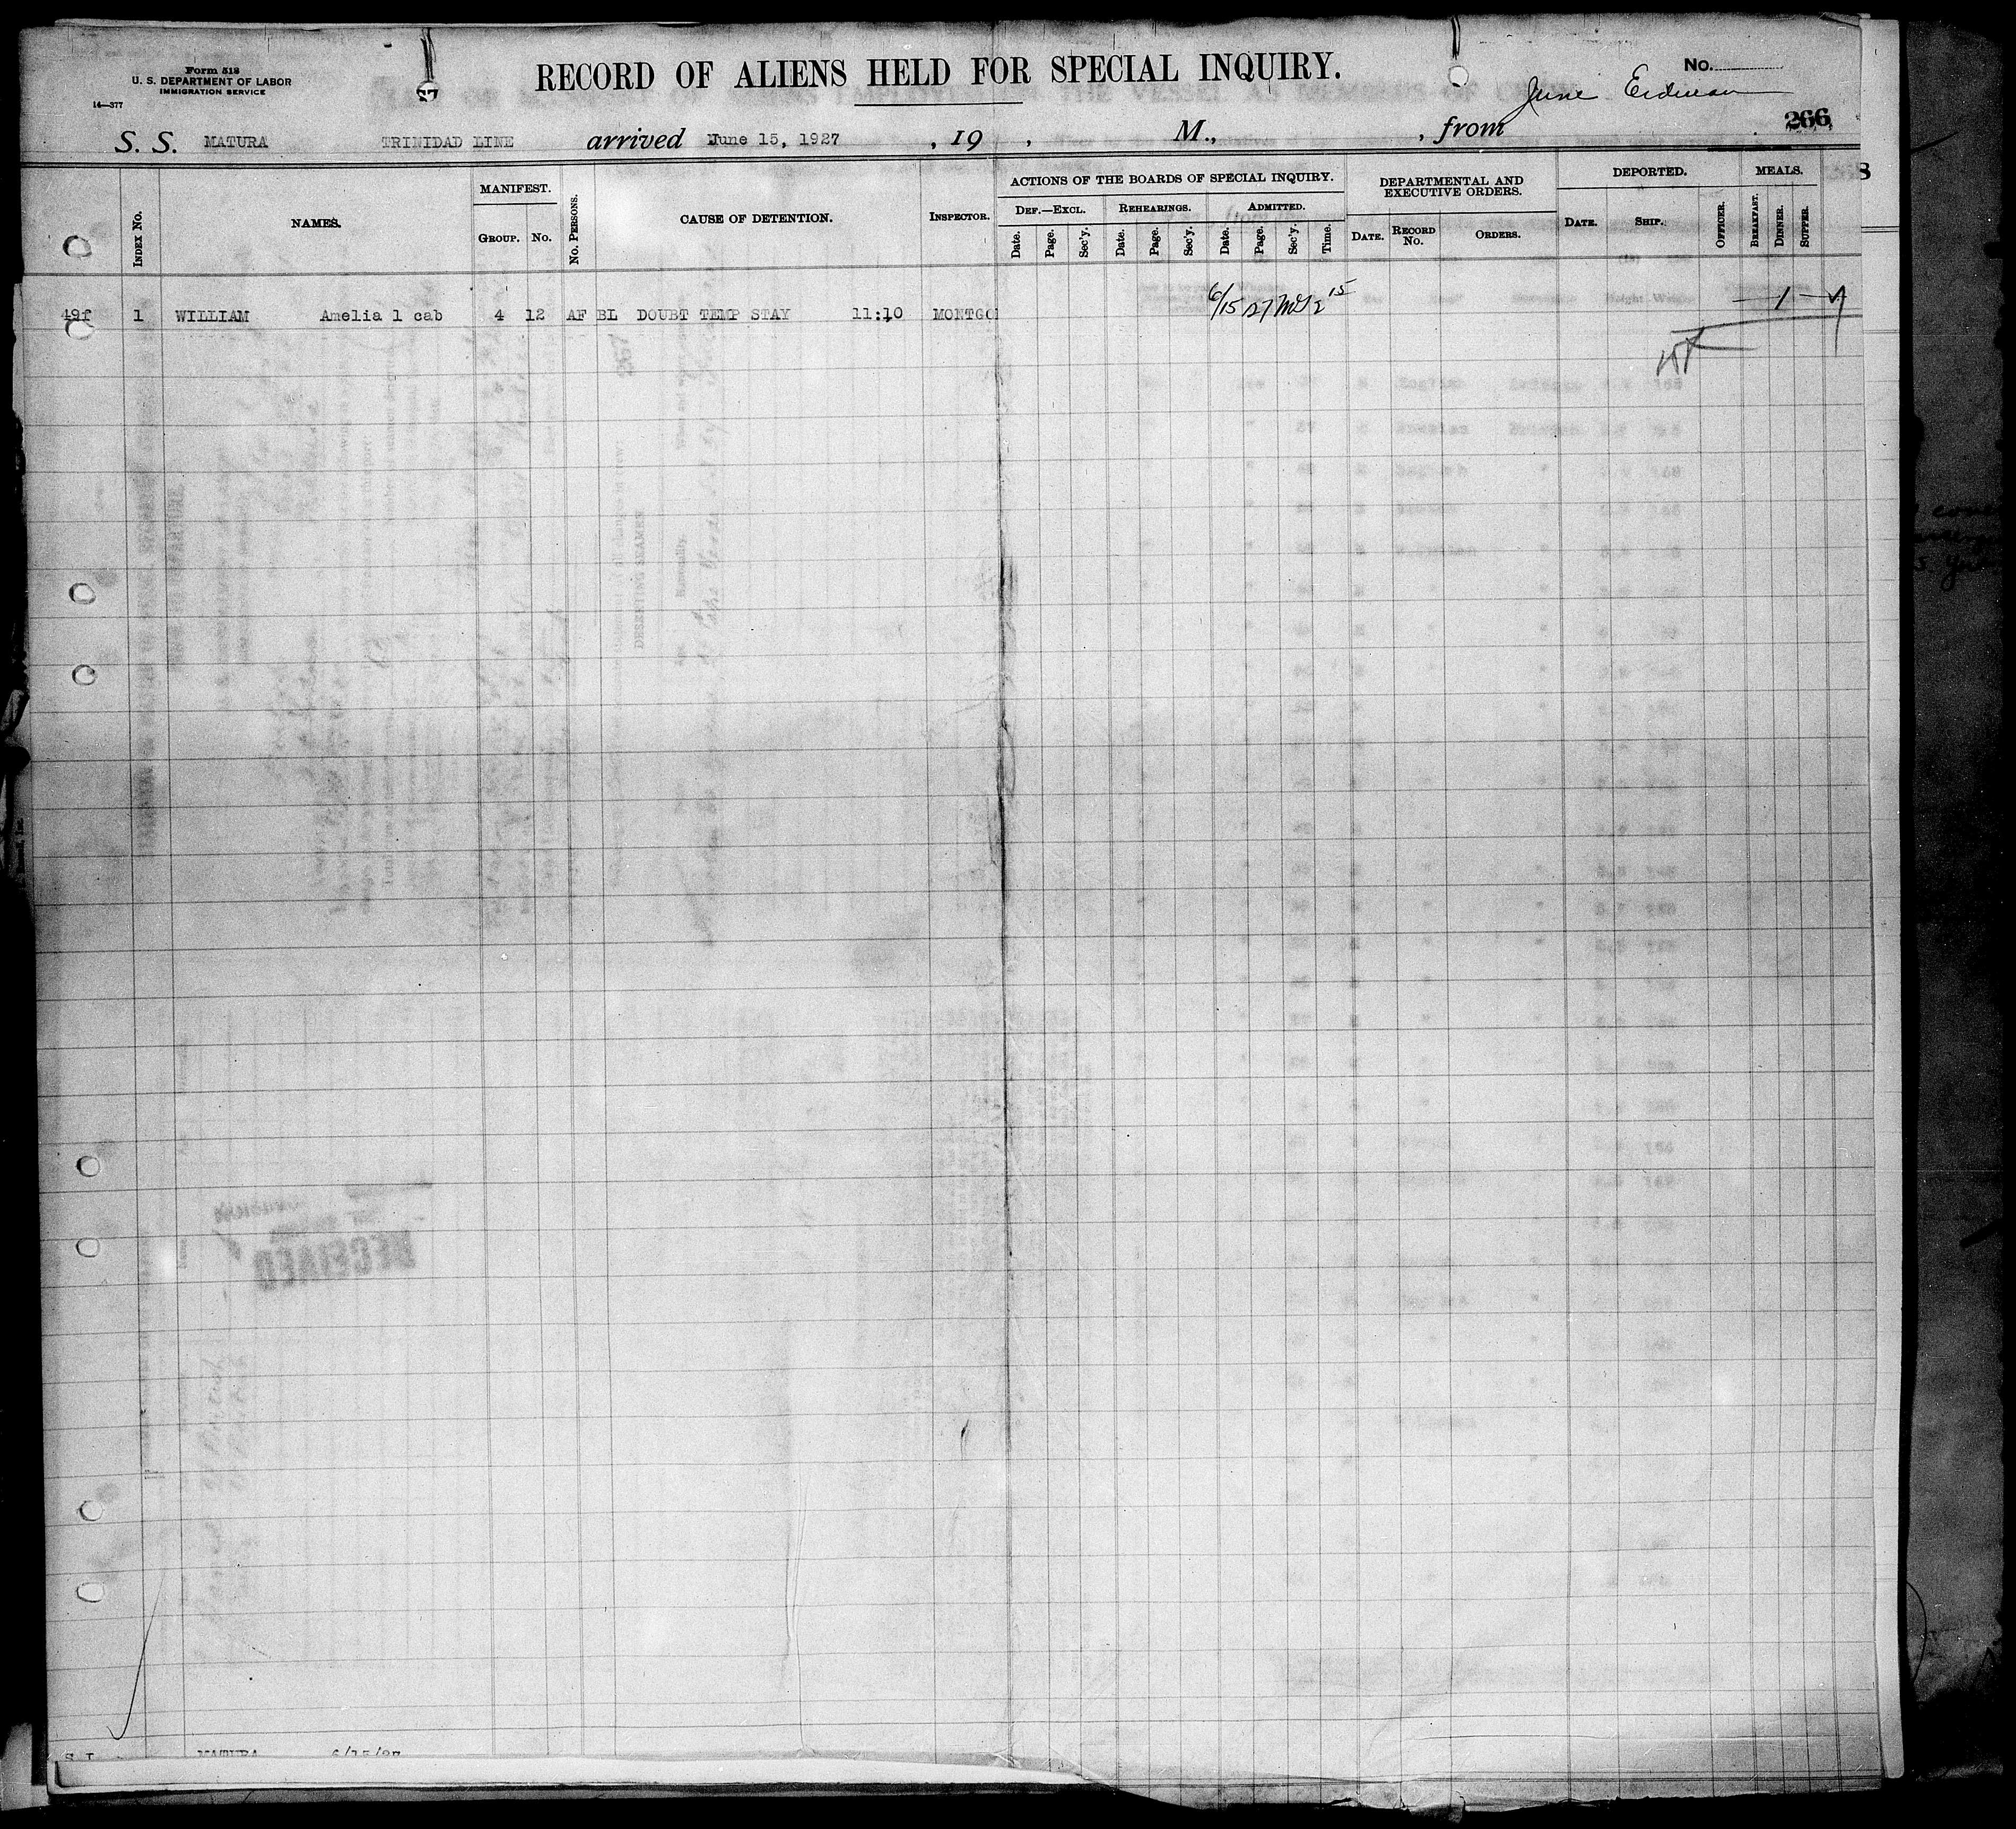 Form 518
U. S. DEPARTMENT OF LABOR
IMMIGRATION SERVICE
14—377
RECORD OF ALIENS HELD FOR SPECIAL INQUIRY.
No.
June Erdman
266
S. S. MATURA TRINIDAD LINE arrived June 15, 1927 , 19 , M., , from
INDEX No.
NAMES.
MANIFEST.
GROUP. No.
No. PERSONS.
CAUSE OF DETENTION.
INSPECTOR.
ACTIONS OF THE BOARDS OF SPECIAL INQUIRY.
DEF.—EXCL. REHEARINGS. ADMITTED.
Date. Page. Sec'y. Date. Page. Sec'y. Date. Page. Sec'y. Time.
DEPARTMENTAL AND EXECUTIVE ORDERS.
DATE. RECORD No. ORDERS.
DEPORTED.
DATE. SHIP. OFFICER.
MEALS.
BREAKFAST. DINNER. SUPPER.
8
49f 1 WILLIAM Amelia 1 cab 4 12 AF BL DOUBT TEMP STAY 11:10 MONTGO 6/15 27 2 15 — 1 —
RECEIVED
S I MATURA 6/15/27